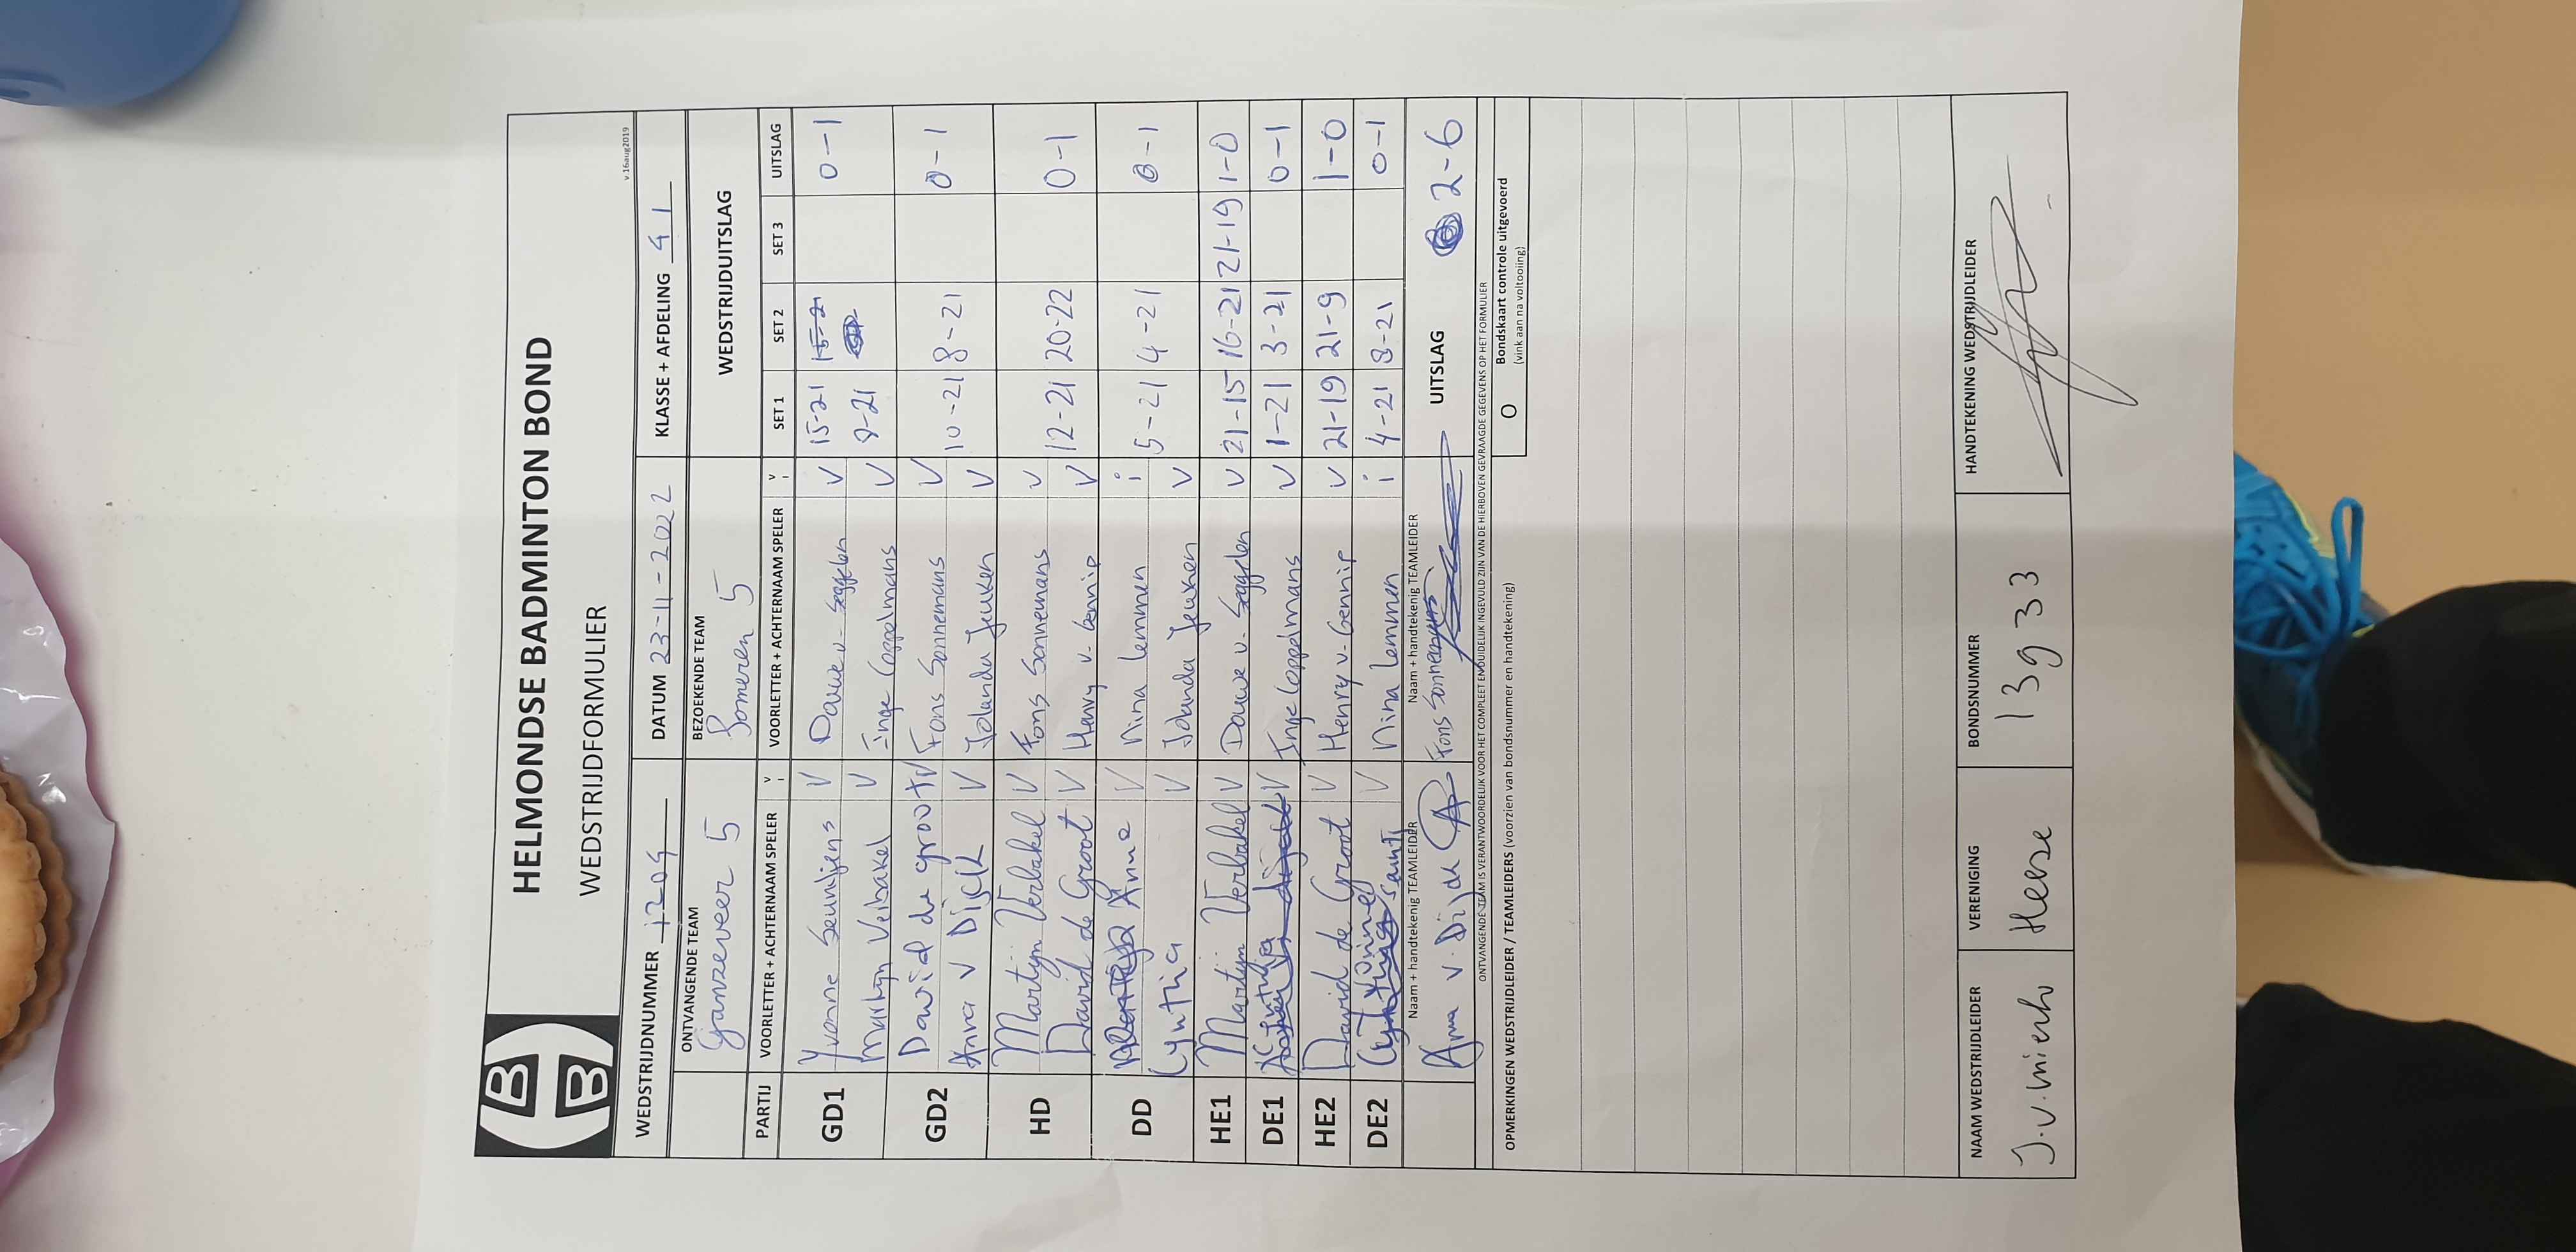 HELMONDSE BADMINTON BOND
WEDSTRIJDFORMULIER
v.16aug2019
WEDSTRIJDNUMMER 1209 DATUM 23-11-2022 KLASSE + AFDELING 4 1
ONTVANGENDE TEAM BEZOEKENDE TEAM WEDSTRIJDUITSLAG
Ganzeveer 5 Someren 5
PARTIJ VOORLETTER + ACHTERNAAM SPELER V I VOORLETTER + ACHTERNAAM SPELER V I SET 1 SET 2 SET 3 UITSLAG
GD1 Yvonne V Douwe v. Seggelen V 15-21 15-21 0-1
Martijn Verbakel V Inge Coppelmans V 9-21
GD2 David de groot V Fons Sonnemans V 10-21 8-21 0-1
Anna v Dijck V Jolanda Jeuken V
HD Martijn Verbakel V Fons Sonnemans V 12-21 20-22 0-1
David de Groot V Henry v. Gennip V
DD Anne V Nina Lemmen i 5-21 4-21 0-1
Cynthia V Jolanda Jeuken V
HE1 Martijn Verbakel V Douwe v. Seggelen V 21-15 16-21 21-19 1-0
DE1 V Inge Coppelmans V 1-21 3-21 0-1
HE2 David de Groot V Henry v. Gennip V 21-19 21-9 1-0
DE2 V Nina Lemmen i 4-21 8-21 0-1
Naam + handtekenig TEAMLEIDER Naam + handtekenig TEAMLEIDER
Anna v. Dijck Fons Sonnemans UITSLAG 2-6
ONTVANGENDE TEAM IS VERANTWOORDELIJK VOOR HET COMPLEET EN DUIDELIJK INGEVULD ZIJN VAN DE HIERBOVEN GEVRAAGDE GEGEVENS OP HET FORMULIER
OPMERKINGEN WEDSTRIJDLEIDER / TEAMLEIDERS (voorzien van bondsnummer en handtekening) O Bondskaart controle uitgevoerd
(vink aan na voltooiing)
NAAM WEDSTRIJDLEIDER VERENIGING BONDSNUMMER HANDTEKENING WEDSTRIJDLEIDER
J.v. Mierlo 13933